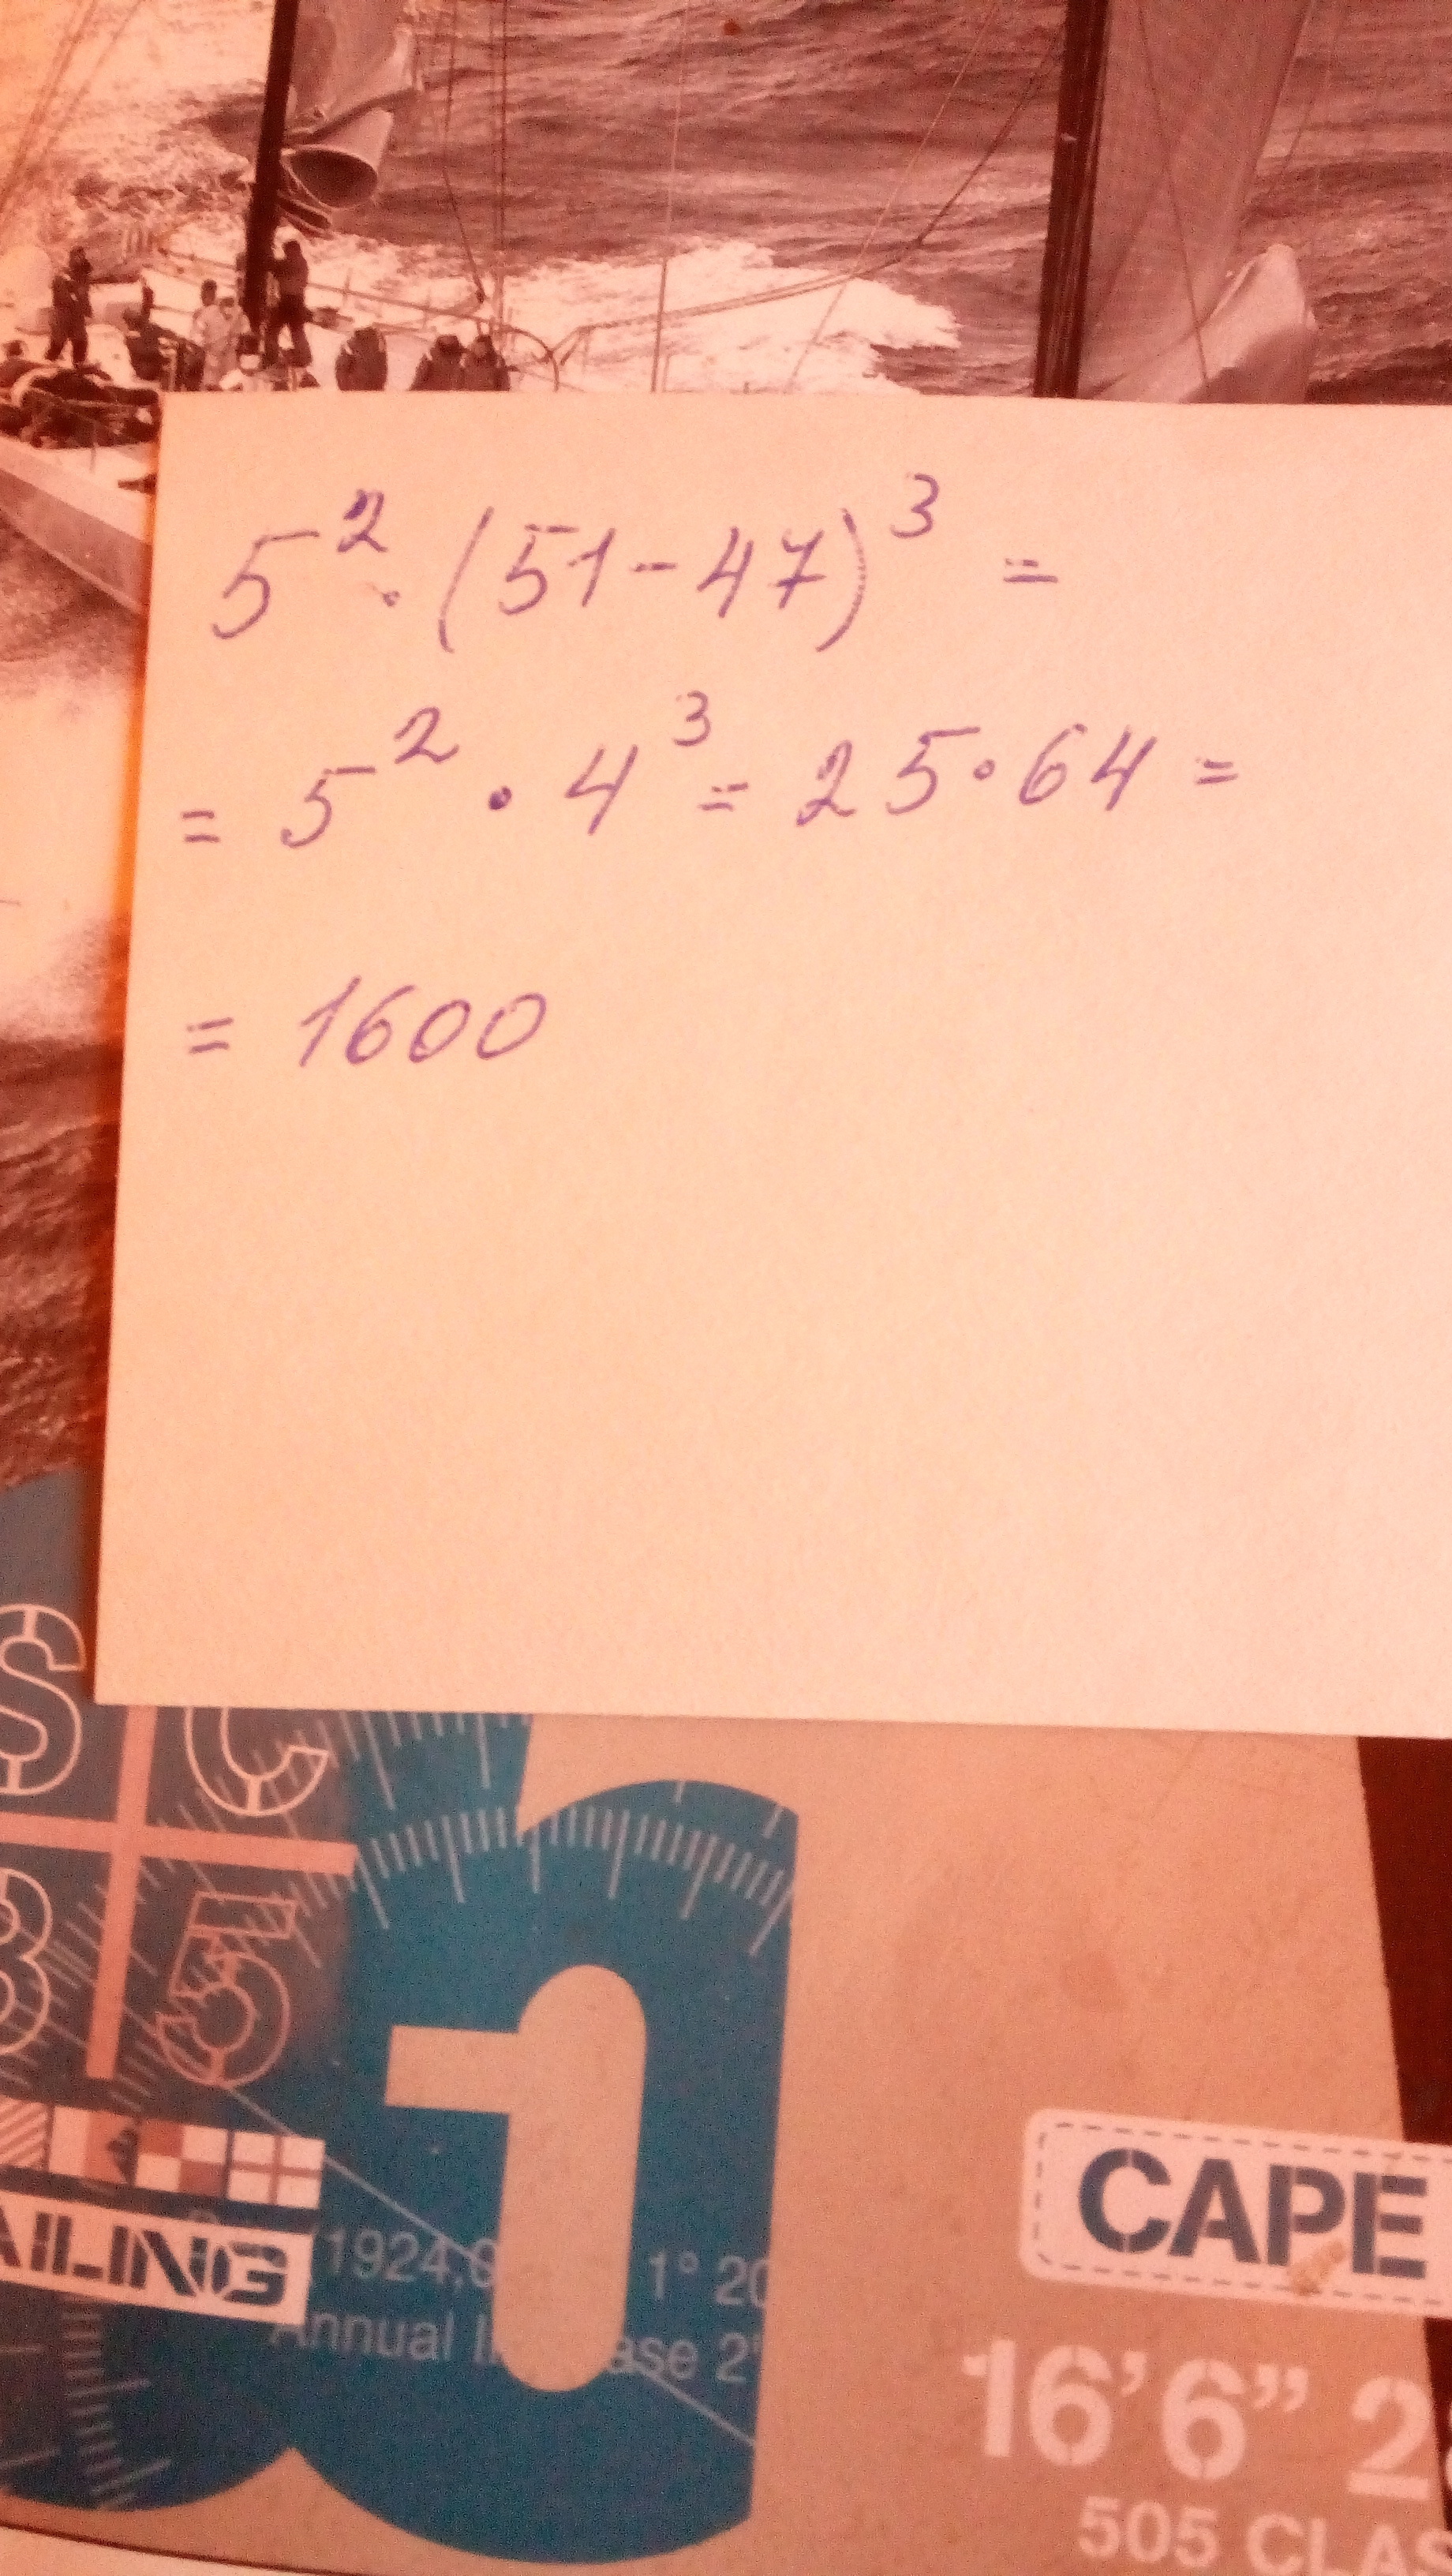 5² · (51-47)³ =
= 5² · 4³ = 25 · 64 =
= 1600
S C
3 5
AILING
1924,
1° 20
Annual
ase 2°
1
CAPE
16'6" 2
505 CLAS